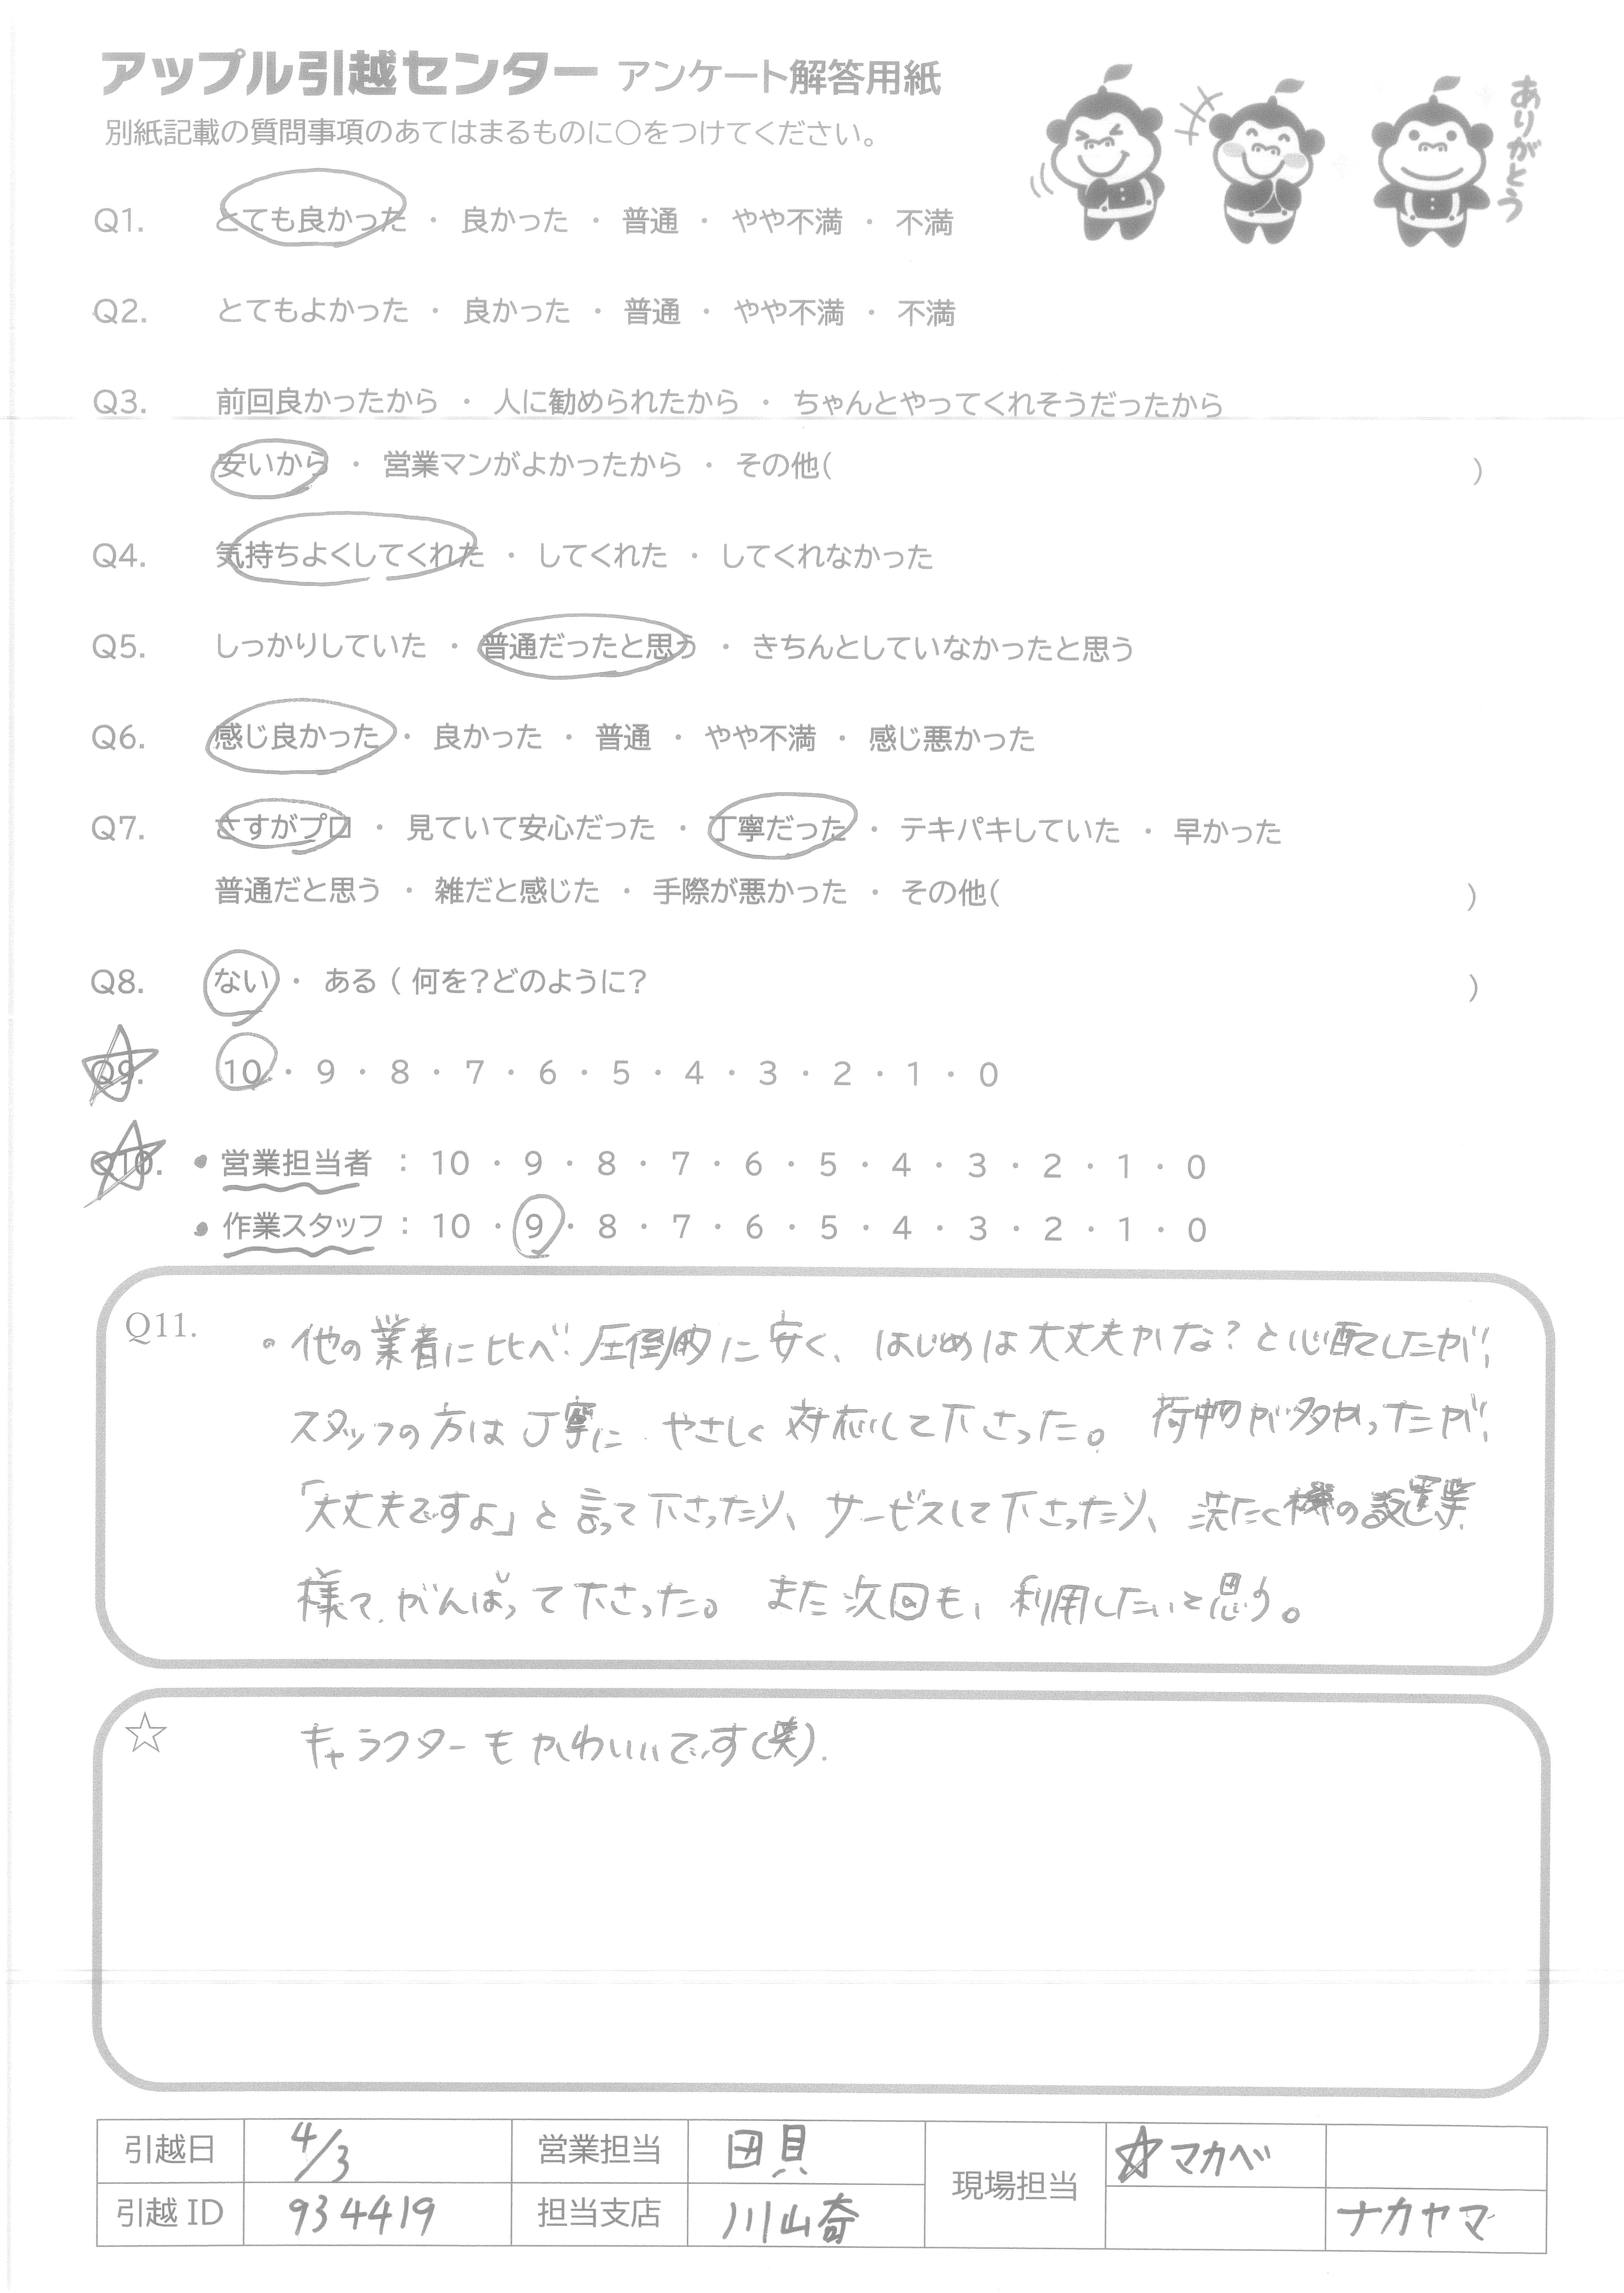 アップル引越センター アンケート解答用紙
ありがとう
別紙記載の質問事項のあてはまるものに○をつけてください。
Q1. とても良かった ・ 良かった ・ 普通 ・ やや不満 ・ 不満
Q2. とてもよかった ・ 良かった ・ 普通 ・ やや不満 ・ 不満
Q3. 前回良かったから ・ 人に勧められたから ・ ちゃんとやってくれそうだったから
安いから ・ 営業マンがよかったから ・ その他( )
Q4. 気持ちよくしてくれた ・ してくれた ・ してくれなかった
Q5. しっかりしていた ・ 普通だったと思う ・ きちんとしていなかったと思う
Q6. 感じ良かった ・ 良かった ・ 普通 ・ やや不満 ・ 感じ悪かった
Q7. さすがプロ ・ 見ていて安心だった ・ 丁寧だった ・ テキパキしていた ・ 早かった
普通だと思う ・ 雑だと感じた ・ 手際が悪かった ・ その他( )
Q8. ない ・ ある ( 何を?どのように? )
Q9. 10 ・ 9 ・ 8 ・ 7 ・ 6 ・ 5 ・ 4 ・ 3 ・ 2 ・ 1 ・ 0
Q10. ・営業担当者 : 10 ・ 9 ・ 8 ・ 7 ・ 6 ・ 5 ・ 4 ・ 3 ・ 2 ・ 1 ・ 0
・作業スタッフ : 10 ・ 9 ・ 8 ・ 7 ・ 6 ・ 5 ・ 4 ・ 3 ・ 2 ・ 1 ・ 0
Q11. 。他の業者に比べ圧倒的に安く、はじめは大丈夫かな?と心配したが、
スタッフの方は丁寧に やさしく対応して下さった。 荷物が多かったが、
「大丈夫ですよ」と言って下さったり、サービスして下さったり、洗たく機の設置業
様で、がんばって下さった。 また次回も、利用したいと思う。
☆ キャラクターもかわいいです(笑).
引越日 4/3 営業担当 田貝 現場担当 ☆マカベ
引越 ID 934419 担当支店 川崎 ナカヤマ